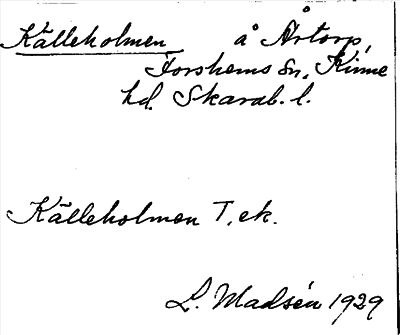 Källeholmen å Årtorp,
Forshems sn, Kinne
hd. Skarab. l.
Källeholmen T. ek.
L. Madsén 1929